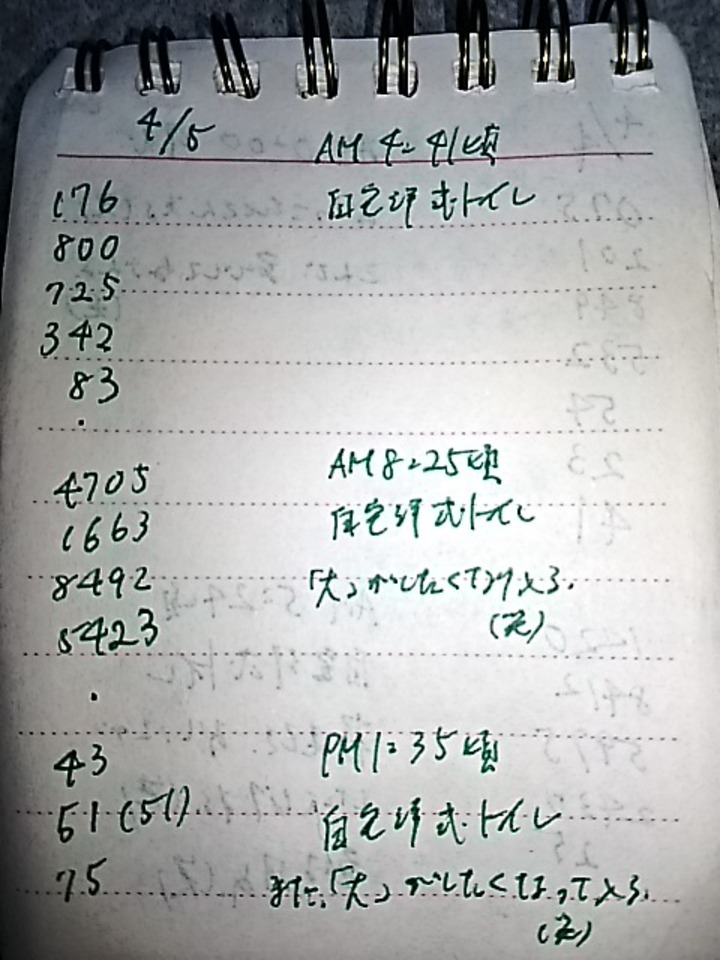 4/5
AM 4:41頃
176 自宅洋式トイレ
800
725
342
83
.
4705 AM 8:25頃
1663 自宅洋式トイレ
8492 「大」がしたくて
5423 (定)
.
43 PM 1:35頃
51 (51) 自宅洋式トイレ
75 また、「大」がしたくなって